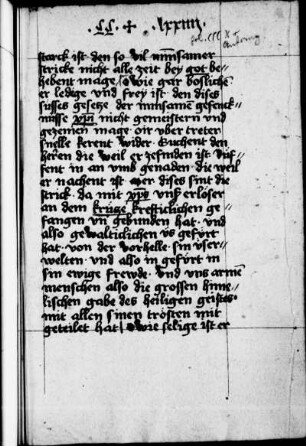 · CC · + · lxxiiii
starck ist den so vil minnsamer
stricke nicht alle zeit bey got be//
hebent mage, O wie gar boslichē
er ledige und frey ist den dises
susses gesetze der minsamē gefenck//
nusse xpi nicht gemeistern und
gezemen mage oir uber treter
snelle kerent wider Suchent den
heren die weil er zefinden ist Ruf//
fent in an umb genaden die weil
er nachent ist dises sint die
strick da mit xps unß erlöser
an dem krütze krefticlichen ge//
fangen uñ gebunden hat und
also gewalticlichen us gefürt
hat von der vorhelle sin user//
welten und also in gefürt in
sin ewige frewde Und uns armē
menschen also die grossen hime//
lischen gabe des heiligen geistes
mit allen sinen trösten mit
geteilet hat, O wie selige ist er